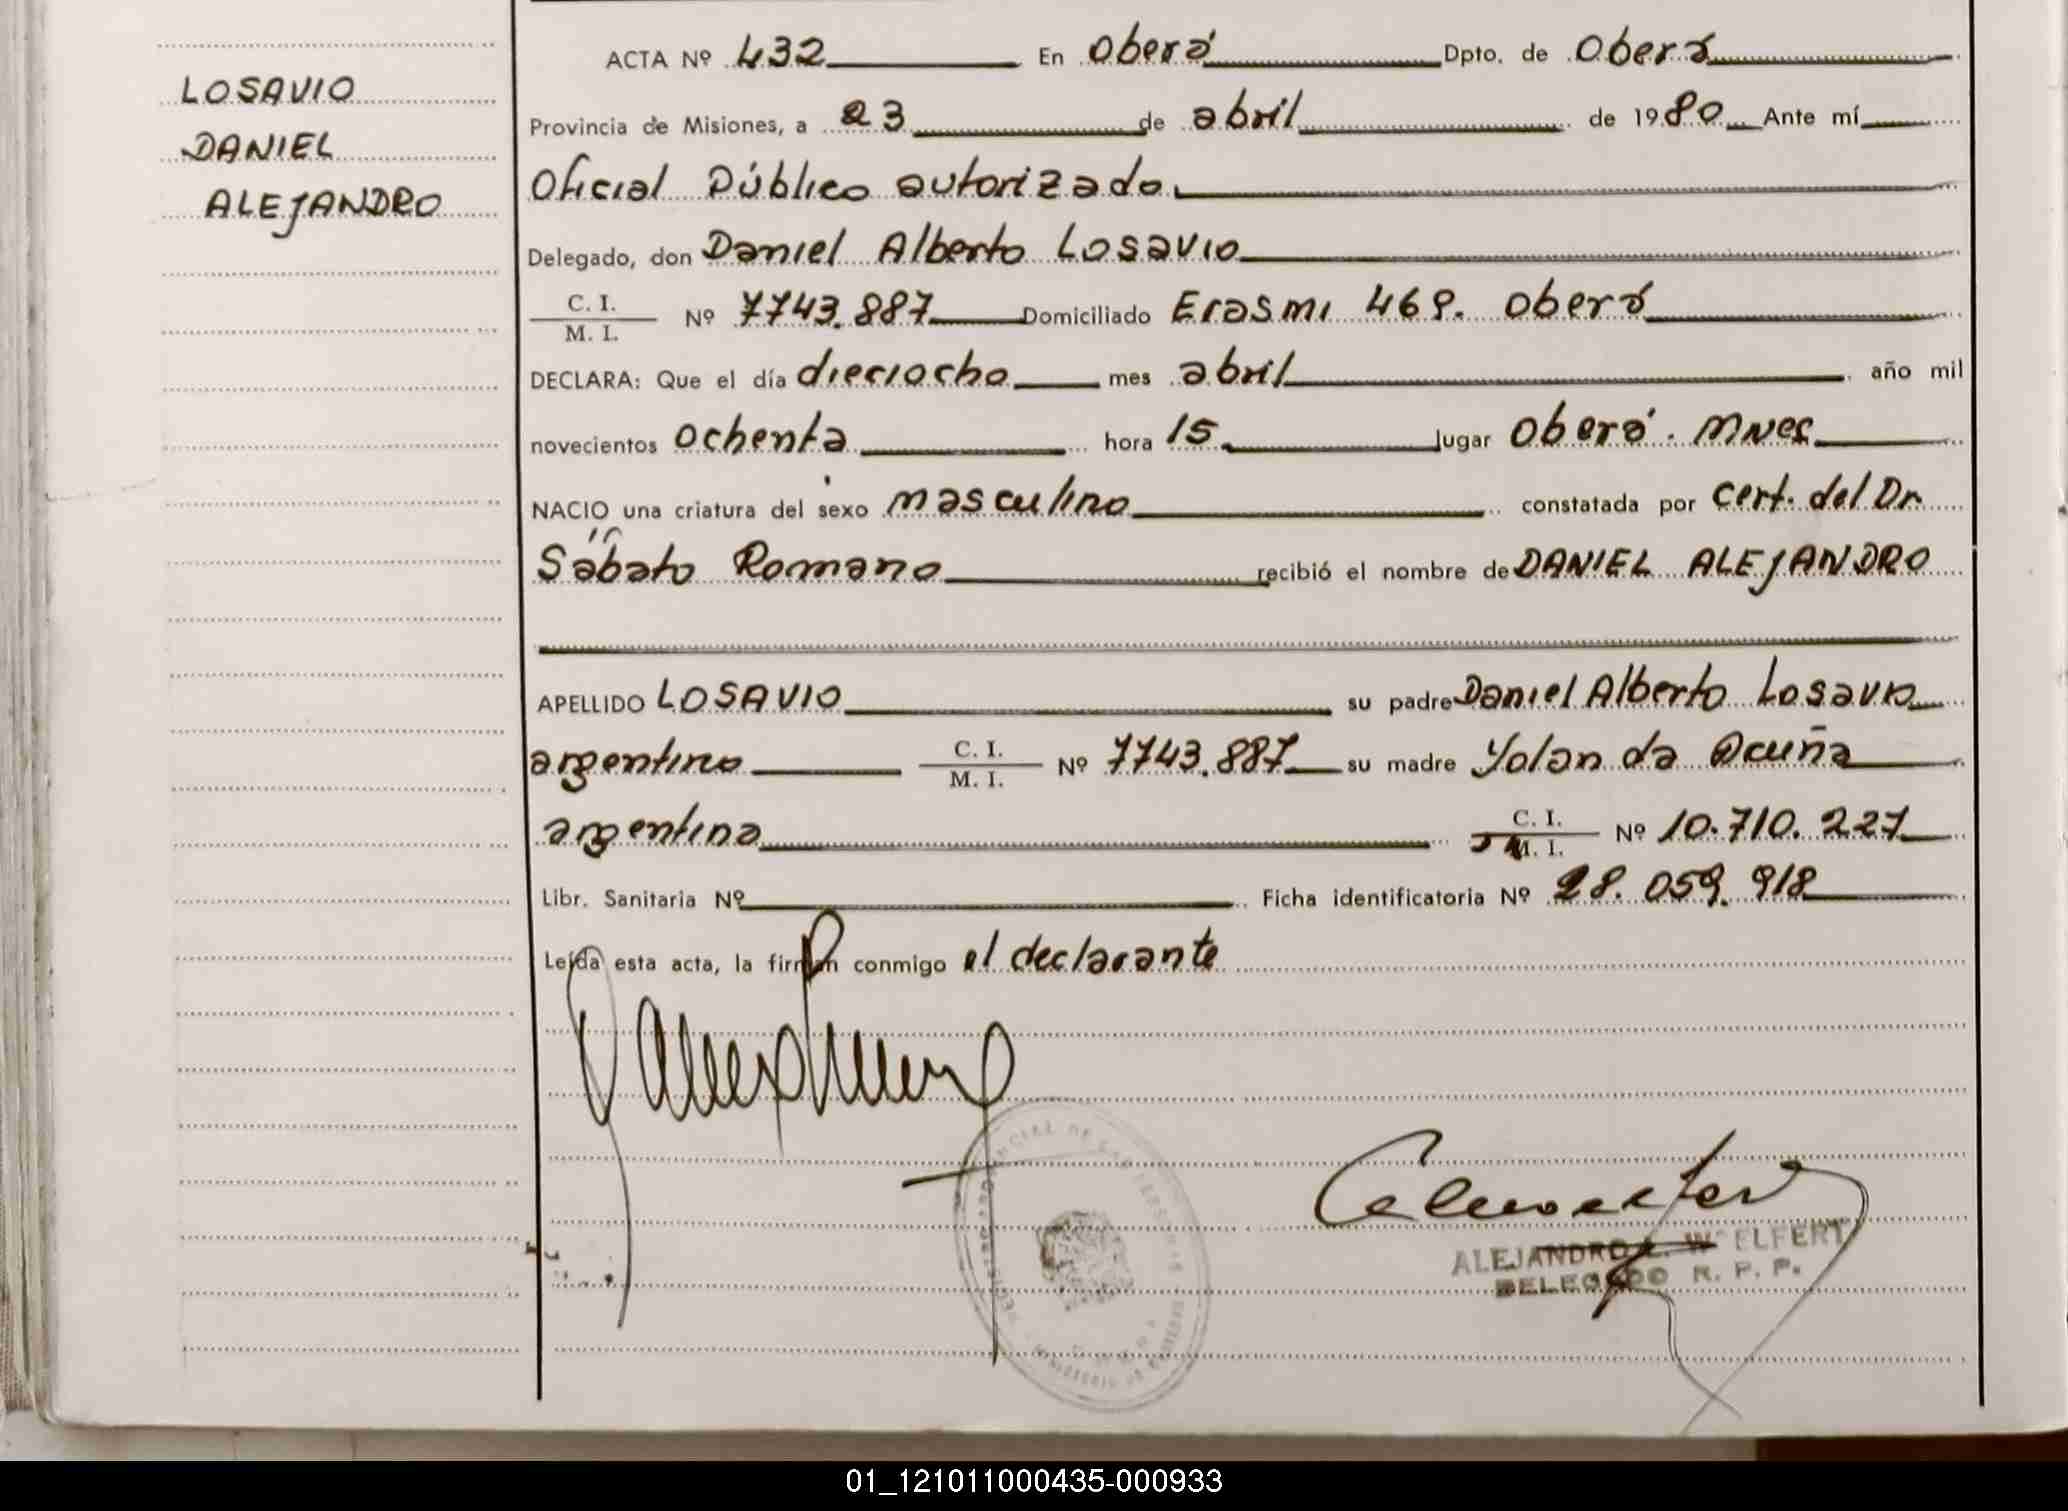 LOSAVIO
DANIEL
ALEJANDRO
ACTA Nº 432 En Oberá Dpto. de Oberá
Provincia de Misiones, a 23 de abril de 1980 Ante mí
Oficial Público autorizado
Delegado, don Daniel Alberto Losavio
C. I.
M. I. Nº 7743.887 Domiciliado Erasmi 469. Oberá
DECLARA: Que el día dieciocho mes abril año mil
novecientos ochenta hora 15 lugar Oberá. Mnes
NACIO una criatura del sexo masculino constatada por cert. del Dr.
Sábato Romano recibió el nombre de DANIEL ALEJANDRO
APELLIDO LOSAVIO su padre Daniel Alberto Losavio
argentino C. I. M. I. Nº 7743.887 su madre Yolanda Acuña
argentina C. I. M. I. Nº 10.710.227
Libr. Sanitaria Nº Ficha identificatoria Nº 28.059.918
Leída esta acta, la firman conmigo el declarante
ALEJANDRO WELFERT
DELEGADO R. P. P.
01_121011000435-000933